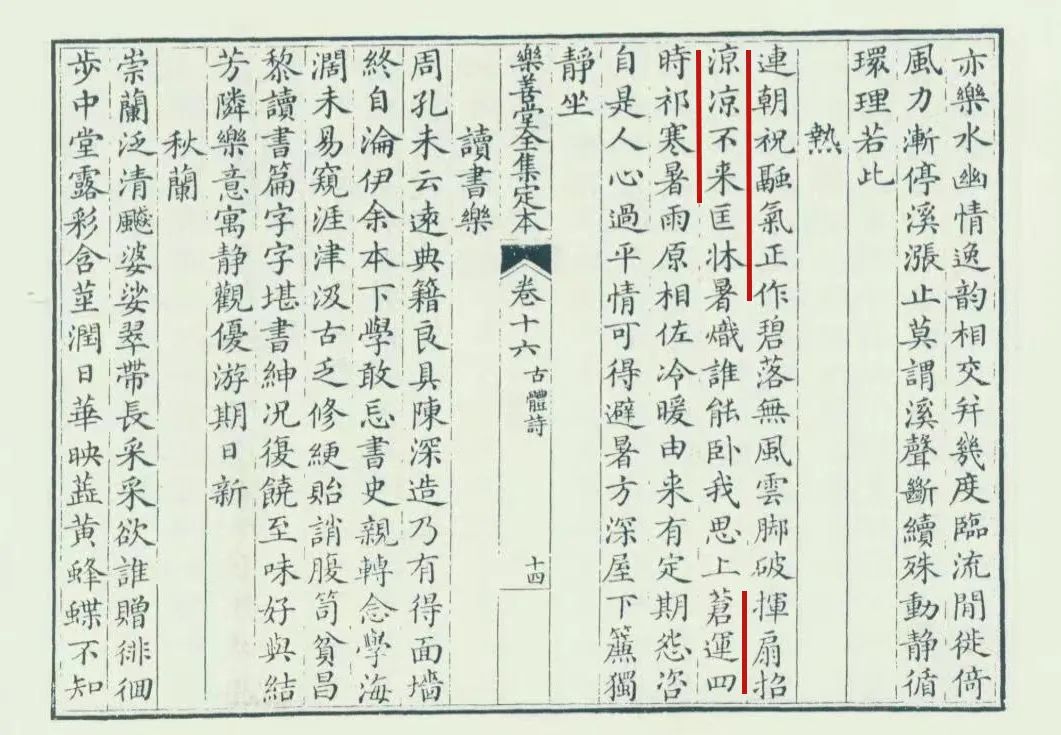 亦樂水幽情逸韵相交并幾度臨流閒徙倚
風力漸停溪漲止莫謂溪聲斷續殊動静循
環理若此
熱
連朝祝融氣正作碧落無風雲脚破揮扇招
涼涼不来匡牀暑熾誰能卧我思上蒼運四
時祁寒暑雨原相佐冷暖由来有定期怨咨
自是人心過平情可得避暑方深屋下簾獨
靜坐
樂善堂全集定本
卷十六
古體詩
十四
讀書樂
周孔未云遠典籍良具陳深造乃有得面墻
終自淪伊余本下學敢忘書史親轉念學海
濶未易窺涯津汲古乏修綆貽誚腹笥貧昌
黎讀書篇字字堪書紳况復饒至味好與結
芳隣樂意寓静觀優游期日新
秋蘭
崇蘭泛清飈婆娑翠帶長采采欲誰贈徘徊
步中堂露彩含莖潤日華映蕋黄蜂蝶不知